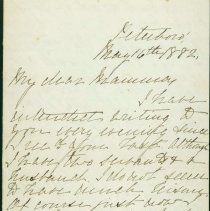 Peterboro
May 16th 1882.
My dear Mamma
I have
intended writing to
you every evening since
I rec'd your last although
I have two servants & a
husband I do not seem
to have much leisure
of course just now